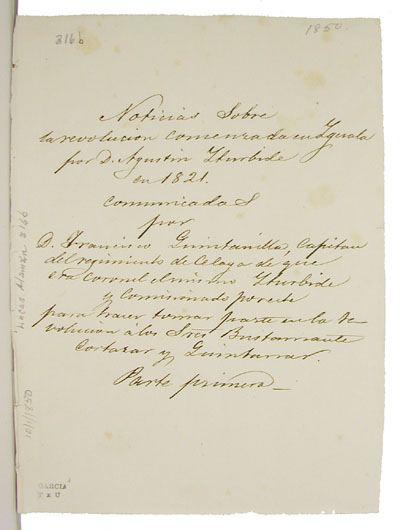 316b
1850.
Noticias Sobre
la revolucion comenzada en Yguala
por D. Agustin Yturbide
en 1821.
comunicadas
por
D. Francisco Quintanilla, Capitan
del regimiento de Celaya de que
era Coronel el mismo Yturbide
y Comisionado por este
para hacer tomar parte en la re
volucion á los Sres Bustamante
Cortazar y Quintanar.
Parte primera
Lucas Alamán 3166
10/1/1850
GARCIA